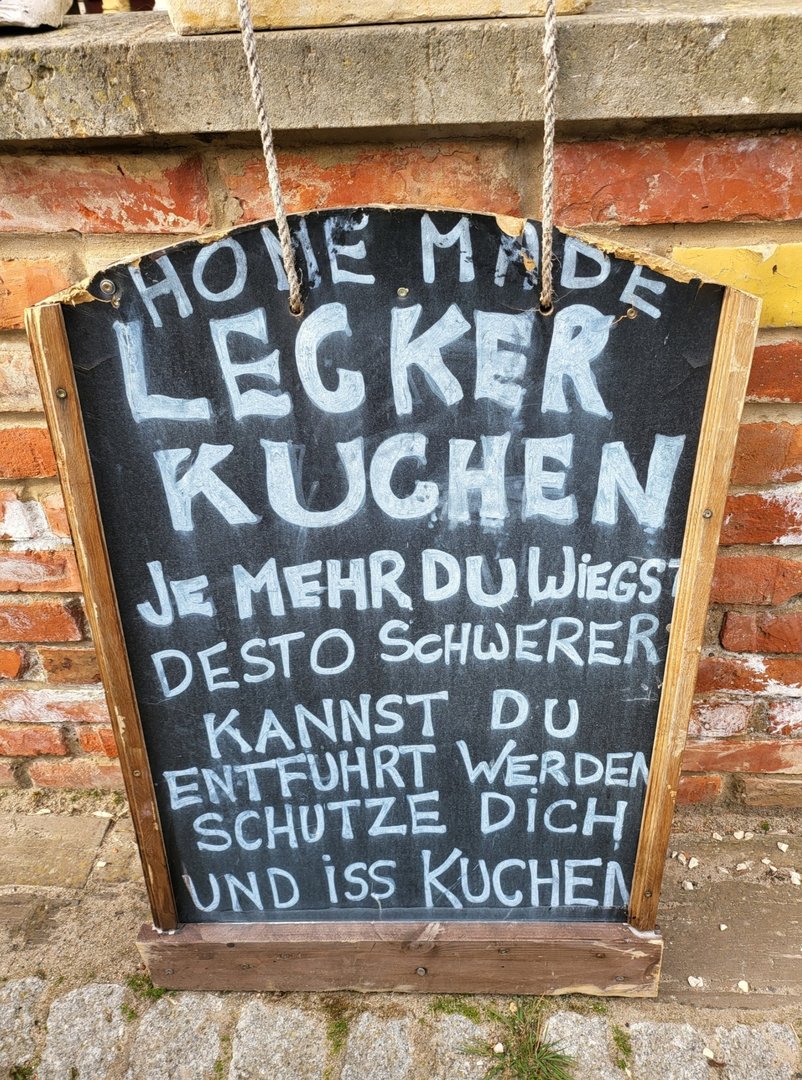 HOME MADE
LECKER
KUCHEN
JE MEHR DU WiEGST
DESTO SCHWERER
KANNST DU
ENTFUHRT WERDEN
SCHUTZE DiCH
UND iSS KUCHEN